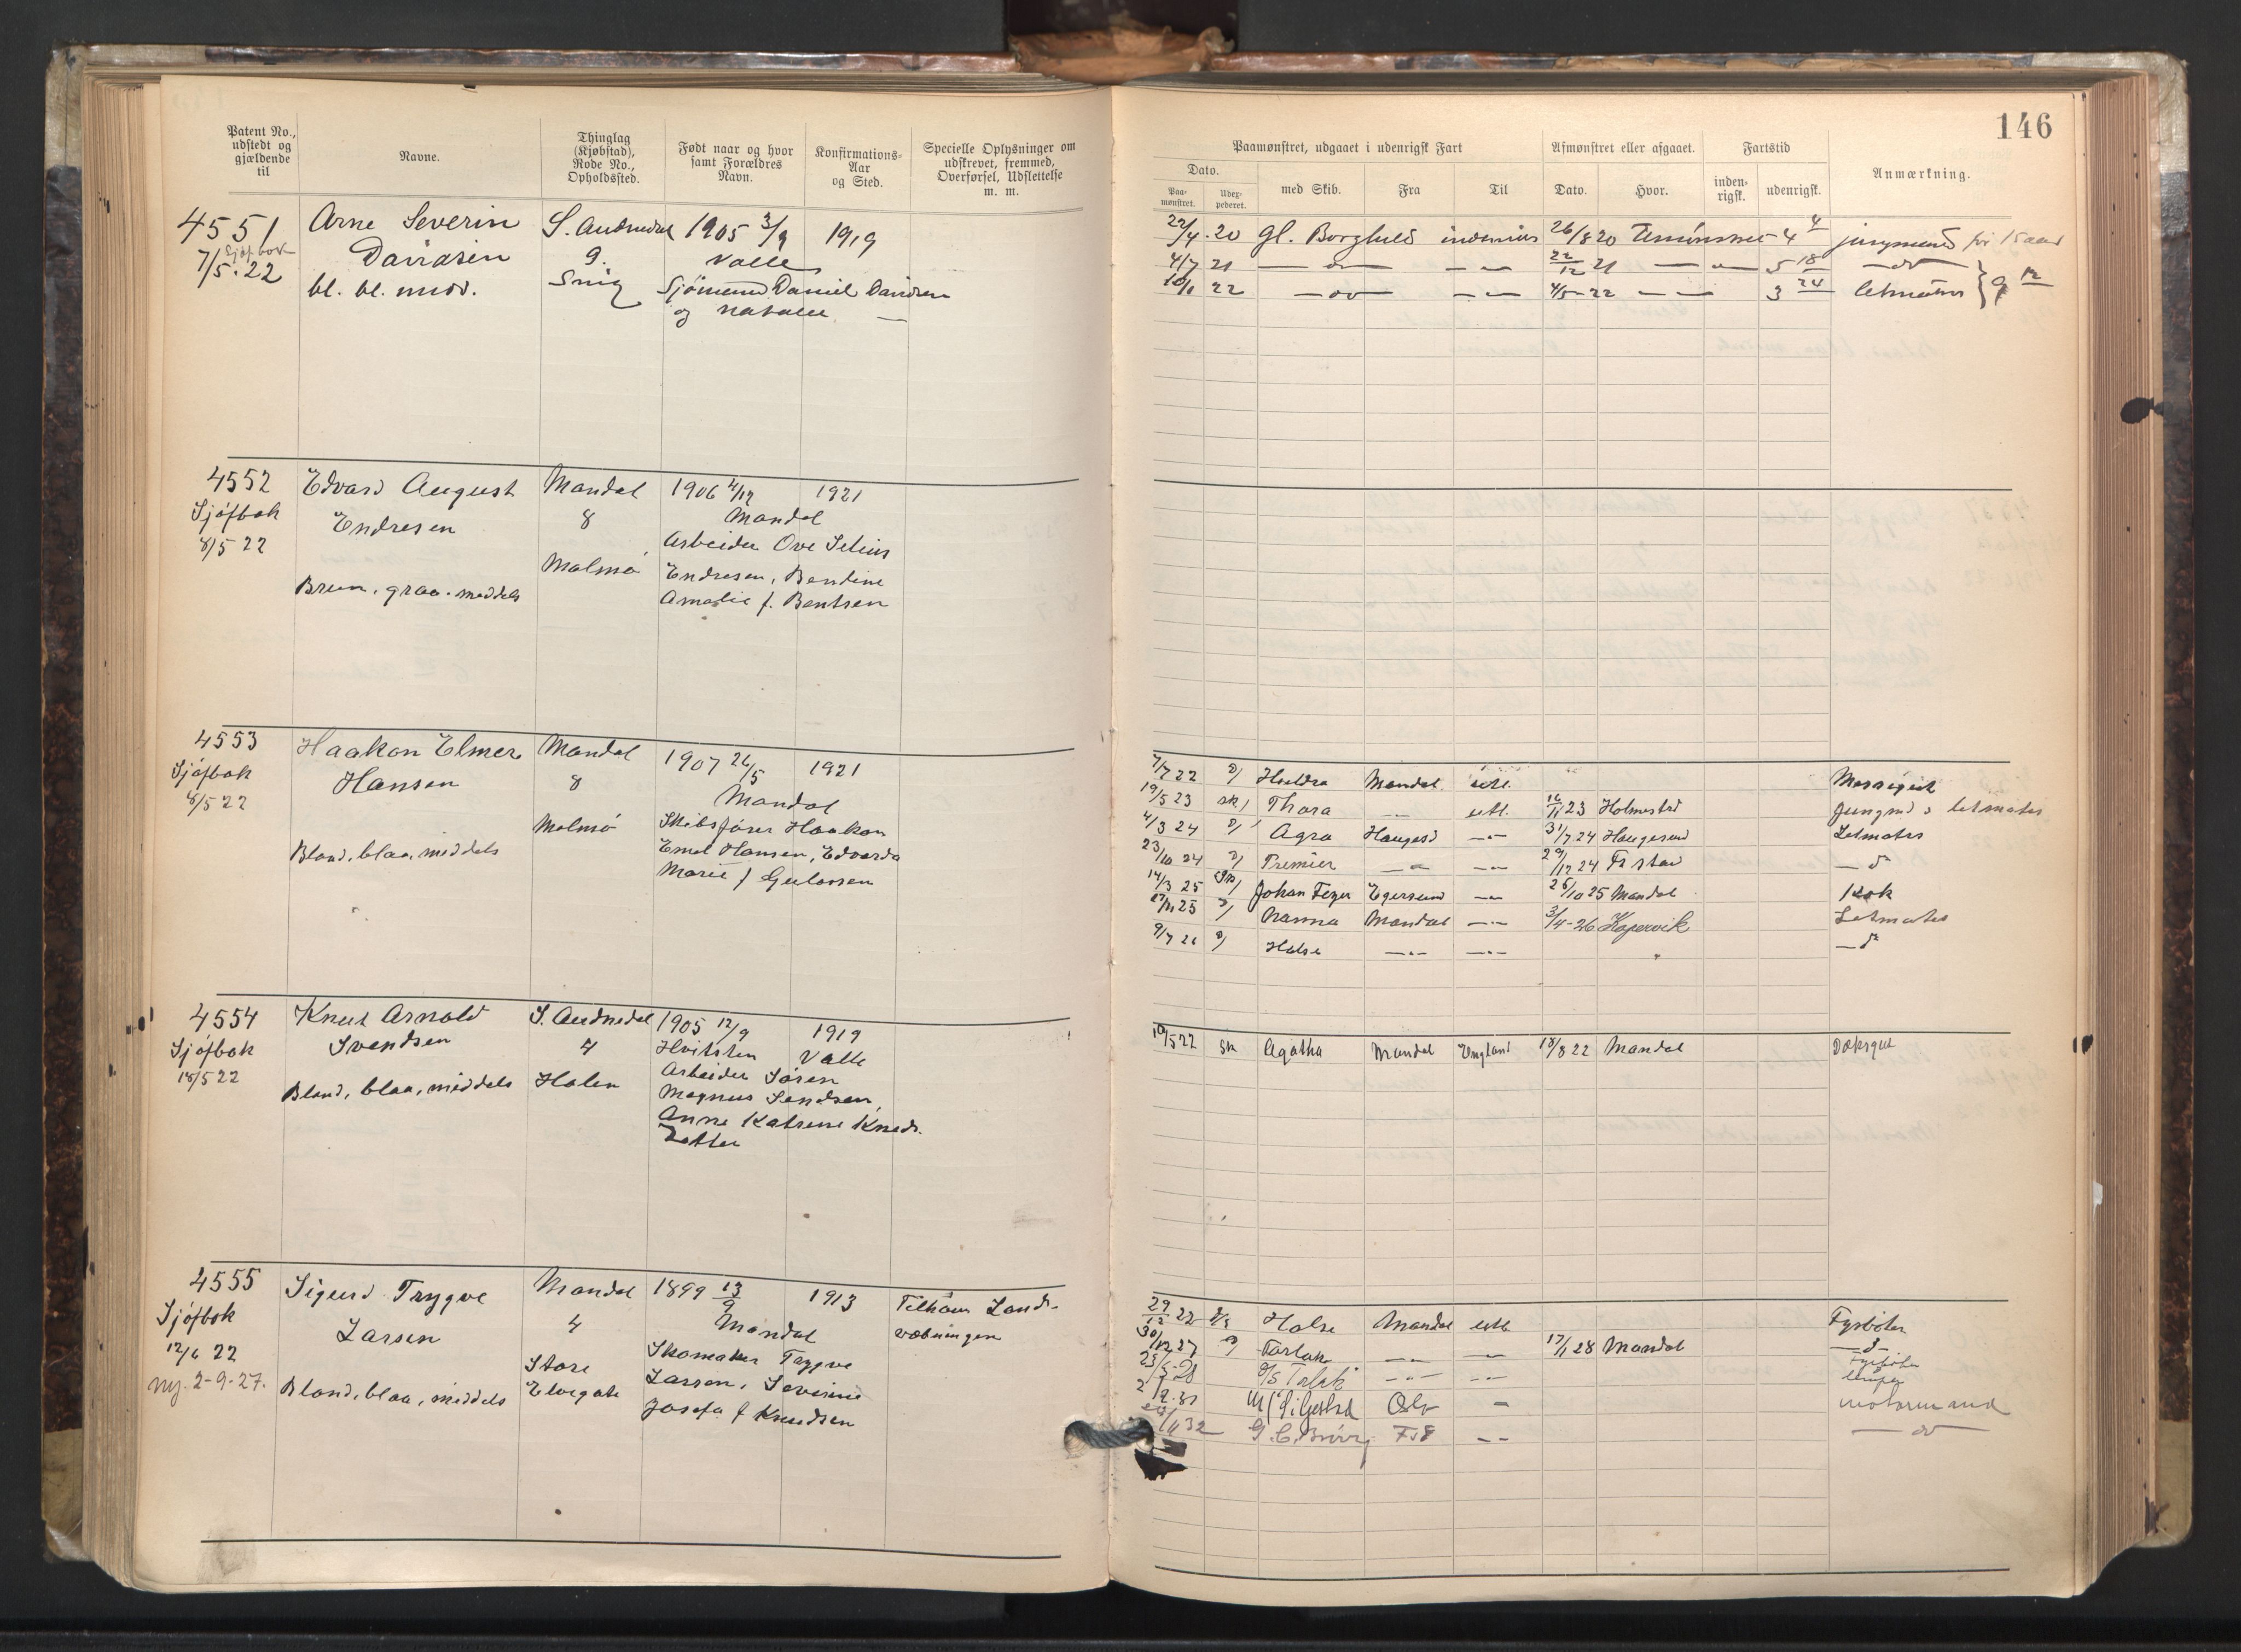 146
Patent No., udstedt og gjældende til
Navne.
Thinglag (Kjøbstad), Rode No., Opholdssted.
Født naar og hvor samt Forældres Navn.
Konfirmations-Aar og Sted.
Specielle Oplysninger om udskrevet, fremmed, Overførsel, Udslettelse m. m.
Paamønstret, udgaaet i udenrigsk Fart
Afmønstret eller afgaaet.
Fartstid
Anmærkning.
Dato.
Paa-mønstret.
Udex-pederet.
med Skib.
Fra
Til
Dato.
Hvor.
inden-rigsk.
udenrigsk.
4551
Sjøfbok
7/5.22
Arne Severin
Davidsen
bl. bl. midd.
S. Audnedal
9.
Snig
1905 3/9
Valle
Sjømand Daniel Davidsen
og
1919
22/4.20 gl. Borghild 26/8 20 4 jungmand for 15 aar
4/7 21 — do — — „ — 22/12 21 — „ — 5 18 — do —
22 — do — — „ — 4/5-22 — — 3 24 letmatros } 9 12
4552
Sjøfbok
8/5 22
Edvard August
Endresen
Brun, graa, middels
Mandal
8
Malmø
1906 4/12
Mandal
Arbeider Ove Selius
Endresen, Bendine
Amalie f. Bentsen
1921
4553
Sjøfbok
8/5 22
Haakon Elmer
Hansen
Blond, blaa, middels
Mandal
8
Malmø
1907 26/5
Mandal
Skibsfører Haakon
Emel Hansen, Edvarda
Marie f
1921
7/7 22 Huldra Mandal utl. Messegut
19/5 23 sk/ Thora — „ — utl. 16/11 23 Holmestrd Jungmd o letmatros
4/3 24 Agra Haugesd — „ — 31/7 24 Haugesund Letmatros
23/10 24 Premier — „ — — „ — 29/12 24 Fr stad — d°
14/3 25 Sk/ Johan Feyer Egersund — „ — 25/10 25 Mandal Kok
25 Nanna Mandal — „ — 3/4-26 Kopervik Letmatros
9/7 26 Halse — „ — — „ — — d°
4554
Sjøfbok
18/5 22
Knut Arnold
Svendsen
Blond, blaa, middels
S. Audnedal
4
Holen
1905 12/9
Hvitsten
Arbeider Søren
Magnus Sendsen,
Anne Katrine Knuds
datter
1919
Valle
19/5 22 sk Agatha Mandal England 18/8 22 Mandal Dæksgut
4555
Sjøfbok
12/6 22
ny. 2-9-27.
Sigurd Trygve
Larsen
Blond, blaa, middels
Mandal
4
Store
Elvegate
1899 13/9
Mandal
Skomaker Trygve
Larsen, Severine
Josefa f Knudsen
1913
Tilhører Land-
væbningen
29/12 22 Halse Mandal utl Fyrbøter
30/12 27 — „ — — „ — 17/1 28 Mandal — d —
28 — „ — — „ — Fyrbøter
2/9.31 Oslo — motormand
32 — „ — — do —